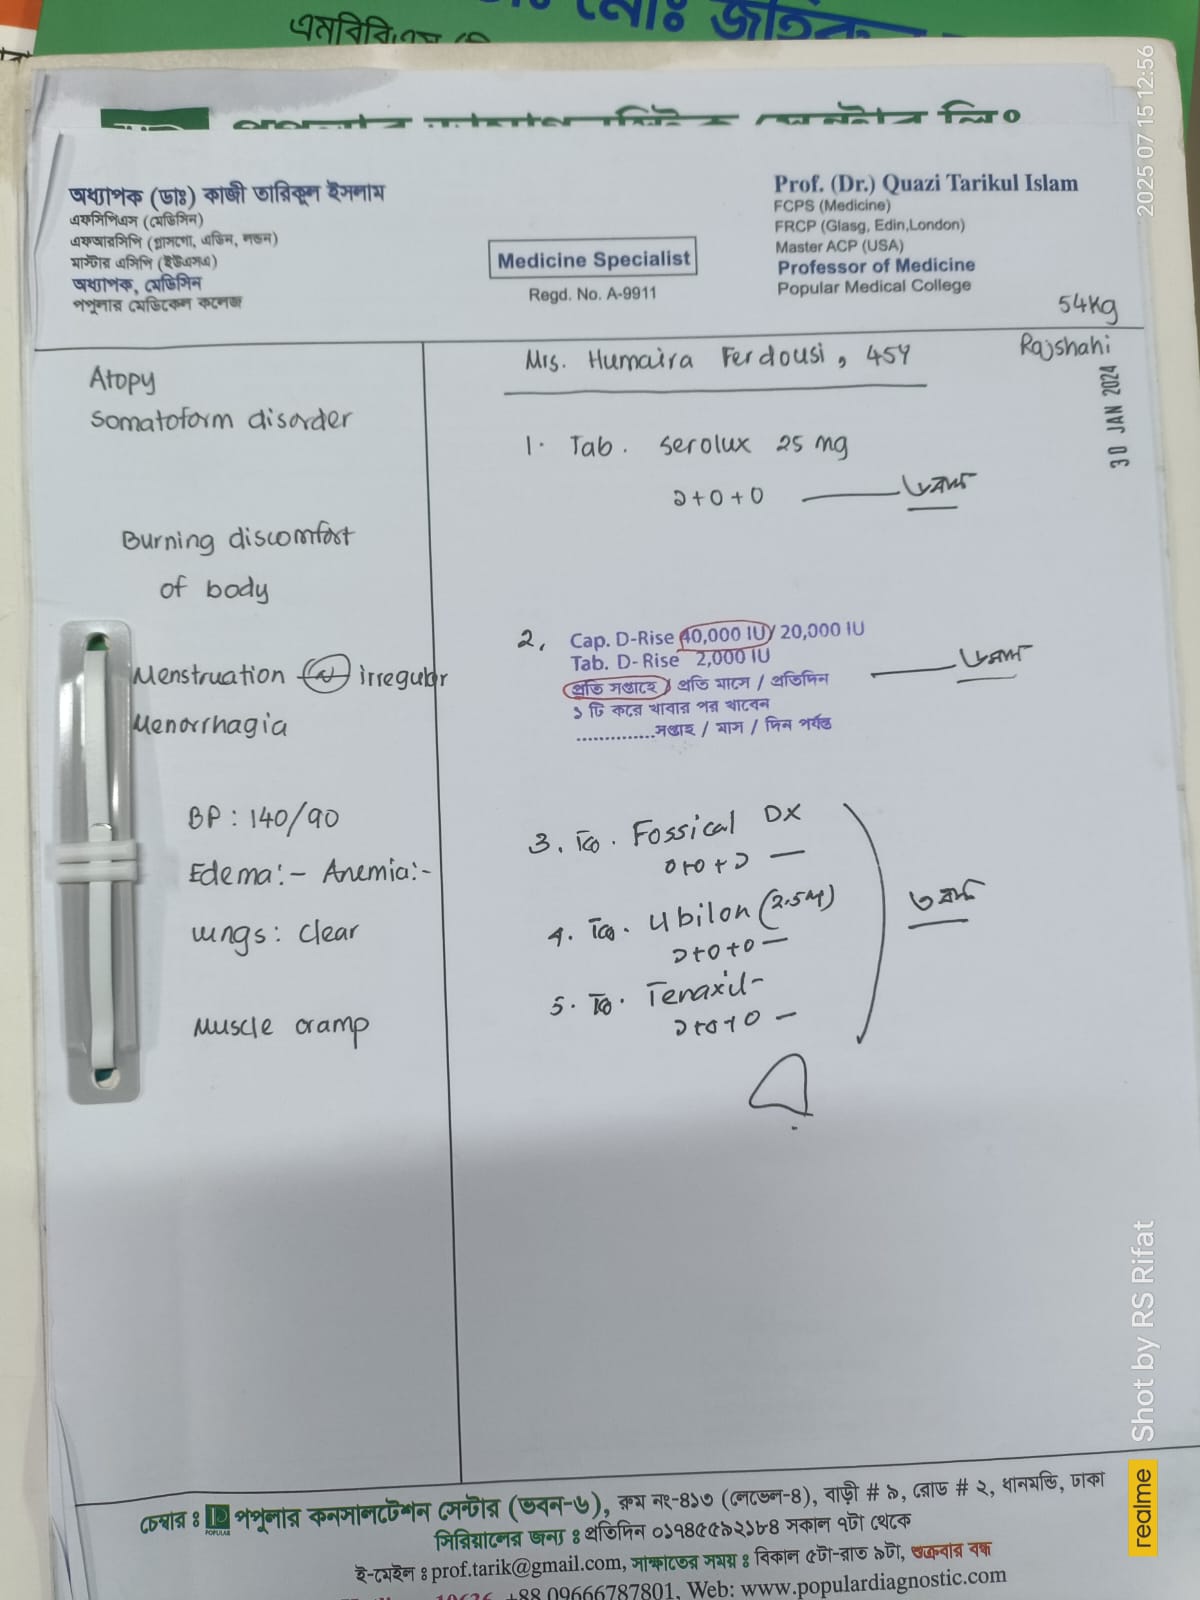 এমবিবিএস
অধ্যাপক (ডাঃ) কাজী তারিকুল ইসলাম
এফসিপিএস (মেডিসিন)
এফআরসিপি (গ্লাসগো, এডিন, লন্ডন)
মাস্টার এসিপি (ইউএসএ)
অধ্যাপক, মেডিসিন
পপুলার মেডিকেল কলেজ
Medicine Specialist
Regd. No. A-9911
Prof. (Dr.) Quazi Tarikul Islam
FCPS (Medicine)
FRCP (Glasg, Edin,London)
Master ACP (USA)
Professor of Medicine
Popular Medical College
54Kg
Mrs. Humaira Ferdousi, 45Y
Rajshahi
30 JAN 2024
Atopy
Somatoform disorder
Burning discomfort
of body
Menstruation irregular
Menorrhagia
BP: 140/90
Edema:- Anemia:-
Lungs: clear
Muscle cramp
1. Tab. Serolux 25 mg
১+0+0
2. Cap. D-Rise 40,000 IU/ 20,000 IU
Tab. D-Rise 2,000 IU
প্রতি সপ্তাহে / প্রতি মাসে / প্রতিদিন
১ টি করে খাবার পর খাবেন
..............সপ্তাহ / মাস / দিন পর্যন্ত
3. Fossical DX
0+0+১
4. Ubilon (2.5M)
১+0+0
5. Tenaxil
১+0+0
৩ মাস
চেম্বার ঃ পপুলার কনসালটেশন সেন্টার (ভবন-৬), রুম নং-৪১৩ (লেভেল-4), বাড়ী # ৯, রোড # ২, ধানমন্ডি, ঢাকা
POPULAR
সিরিয়ালের জন্য ঃ প্রতিদিন ০১৭৪৫৫৯২১৮৪ সকাল ৭টা থেকে
ই-মেইল ঃ prof.tarik@gmail.com, সাক্ষাতের সময় ঃ বিকাল ৫টা-রাত ৯টা, শুক্রবার বন্ধ
+88 09666787801, Web: www.populardiagnostic.com
2025 07 15 12:56
Shot by RS Rifat
realme